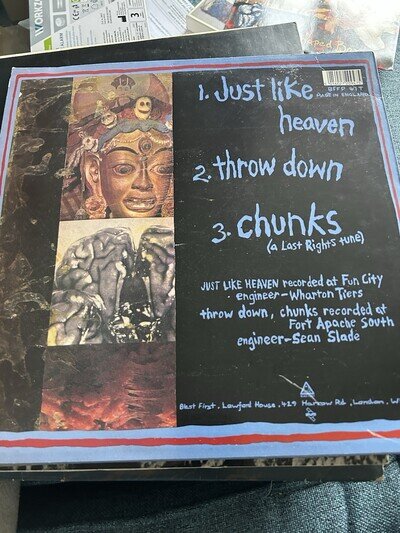 1. Just like
heaven
2. throw down
3. chunks
(a Last Rights tune)
JUST LIKE HEAVEN recorded at Fun City
engineer-Wharton Tiers
throw down, chunks recorded at
Fort Apache South
engineer-Sean Slade
Blast First. Lawford House. 429 Harrow Rd. London. W
MADE IN ENGLAND